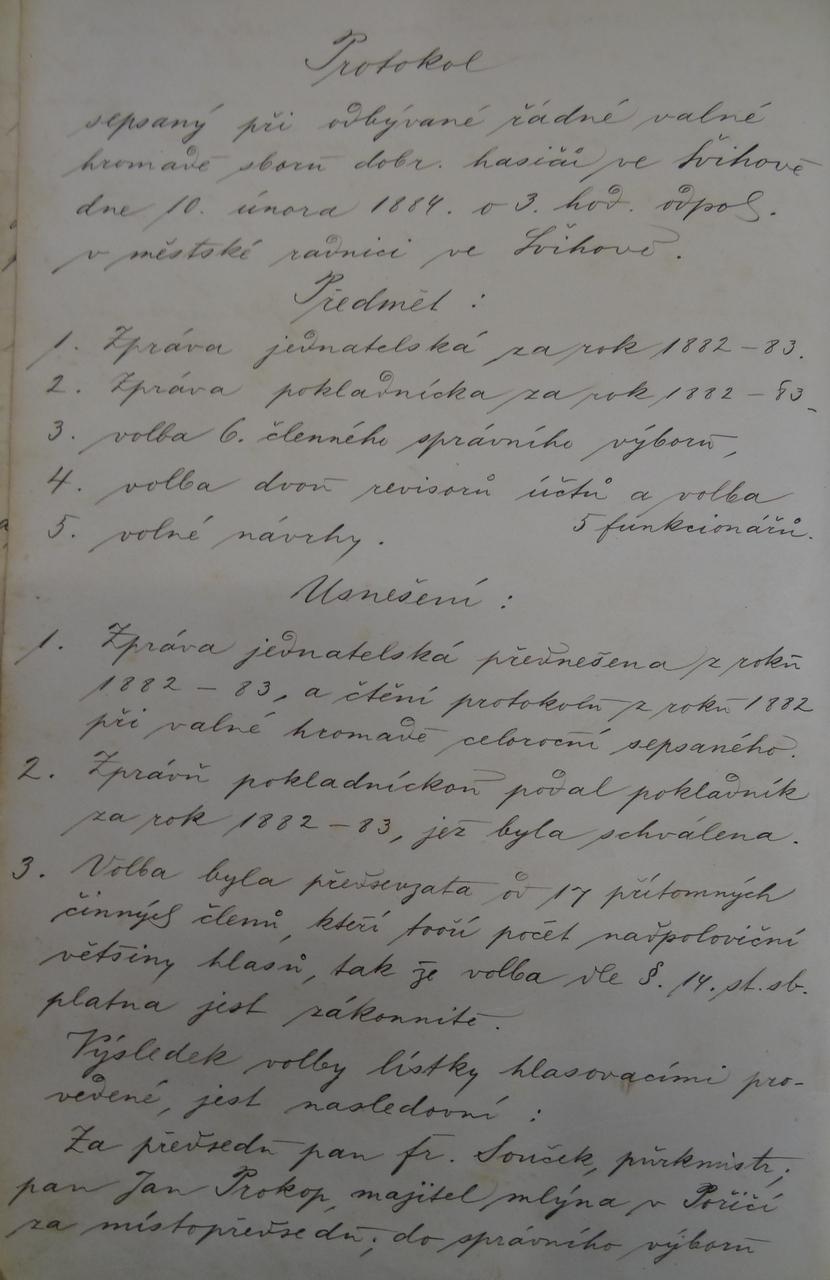 Protokol
sepsaný při odbývané řádné valné
hromadě sboru dobr. hasičů ve Švihově
dne 10. února 1884. o 3. hod. odpol.
v městské radnici ve Švihově.
Předmět :
1. Zpráva jednatelská za rok 1882 – 83.
2. Zpráva pokladnícka za rok 1882 – 83.
3. volba 6. členného správního výboru,
4. volba dvou revisorů účtů a volba
5 funkcionářů.
5. volné návrhy.
Usnešení :
1. Zpráva jednatelská přednešena z roku
1882 – 83, a čtění protokolu z roku 1882
při valné hromadě celoroční sepsaného.
2. Zprávu pokladníckou podal pokladník
za rok 1882 – 83, jež byla schválena.
3. Volba byla předsevzata od 17 přítomných
činných členů, kteří tvoří počet nadpoloviční
většiny hlasů, tak že volba dle §. 14. st. sb.
platna jest zákonnitě.
Výsledek volby lístky hlasovacími pro-
vedené, jest nasledovní :
Za předsedu pan fr. Souček, purkmistr;
pan Jan Prokop, majitel mlýna v Poříčí
za místopředsedu; do správního výboru